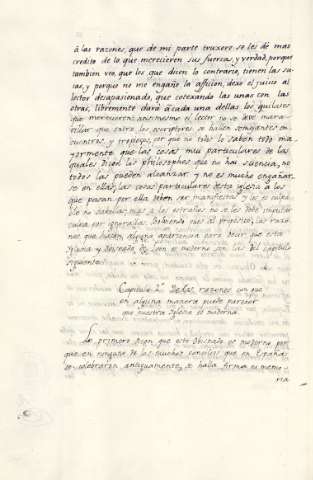 â las razones, que de mi parte truxere se les dê mas
credito de lo que merecieren sus fuerças, y verdad, porque
tambien veo, que los que dicen lo contrario, tienen las su-
ias, y porque no me engañe la afficion, dexo el juicio al
lector desapasionado, que cotexando las unas con las
otras, libremente dará â cada una dellas los quilates
que merecieren: ansimesmo el lector no se debe mara-
villar que entre los escriptores se hallen semejantes en-
cuentros, y tropieços, por que no todos lo saben todo ma-
yormente que las cosas mui particulares de las
quales dicen los philosophos que no hai sciencia, no
todos las pueden alcançar y no es mucho engañar-
se en ellas, las cosas particulares desta iglesia â los
que pasan por ella deben ser manifiestas y les es culpa
el no saberlas; mas a los estraños no se les debe
culpa por ignorallas. Bolviendo pues al proposito, las razo-
nes que hacen alguna aparencia para decir que esta
Iglesia y Obispado de Leon es moderno son las del capitulo
siguiente.
Capitulo 2º De las razones en que
en alguna manera puede parecer
que nuestra Iglesia es moderna.
Lo primero dicen que este Obispado es moderno por-
que en ninguno de los muchos concilios que en España
se celebraron antiguamente, se halla firma ni memo-
ria